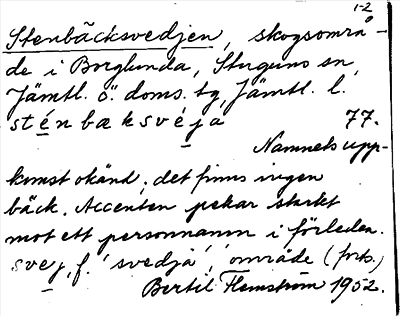 1-2
Stenbäcksvedjen, skogsområ-
de i Borglunda, Stuguns sn,
Jämtl. ö. doms. tg, Jämtl. l.
sténbæksvéja 77.
Namnets upp-
komst okänd, det finns ingen
bäck. Accenten pekar starkt
mot ett personnamn i förleden.
svej, f. 'svedja', område (forts.)
Bertil Flemström 1952.